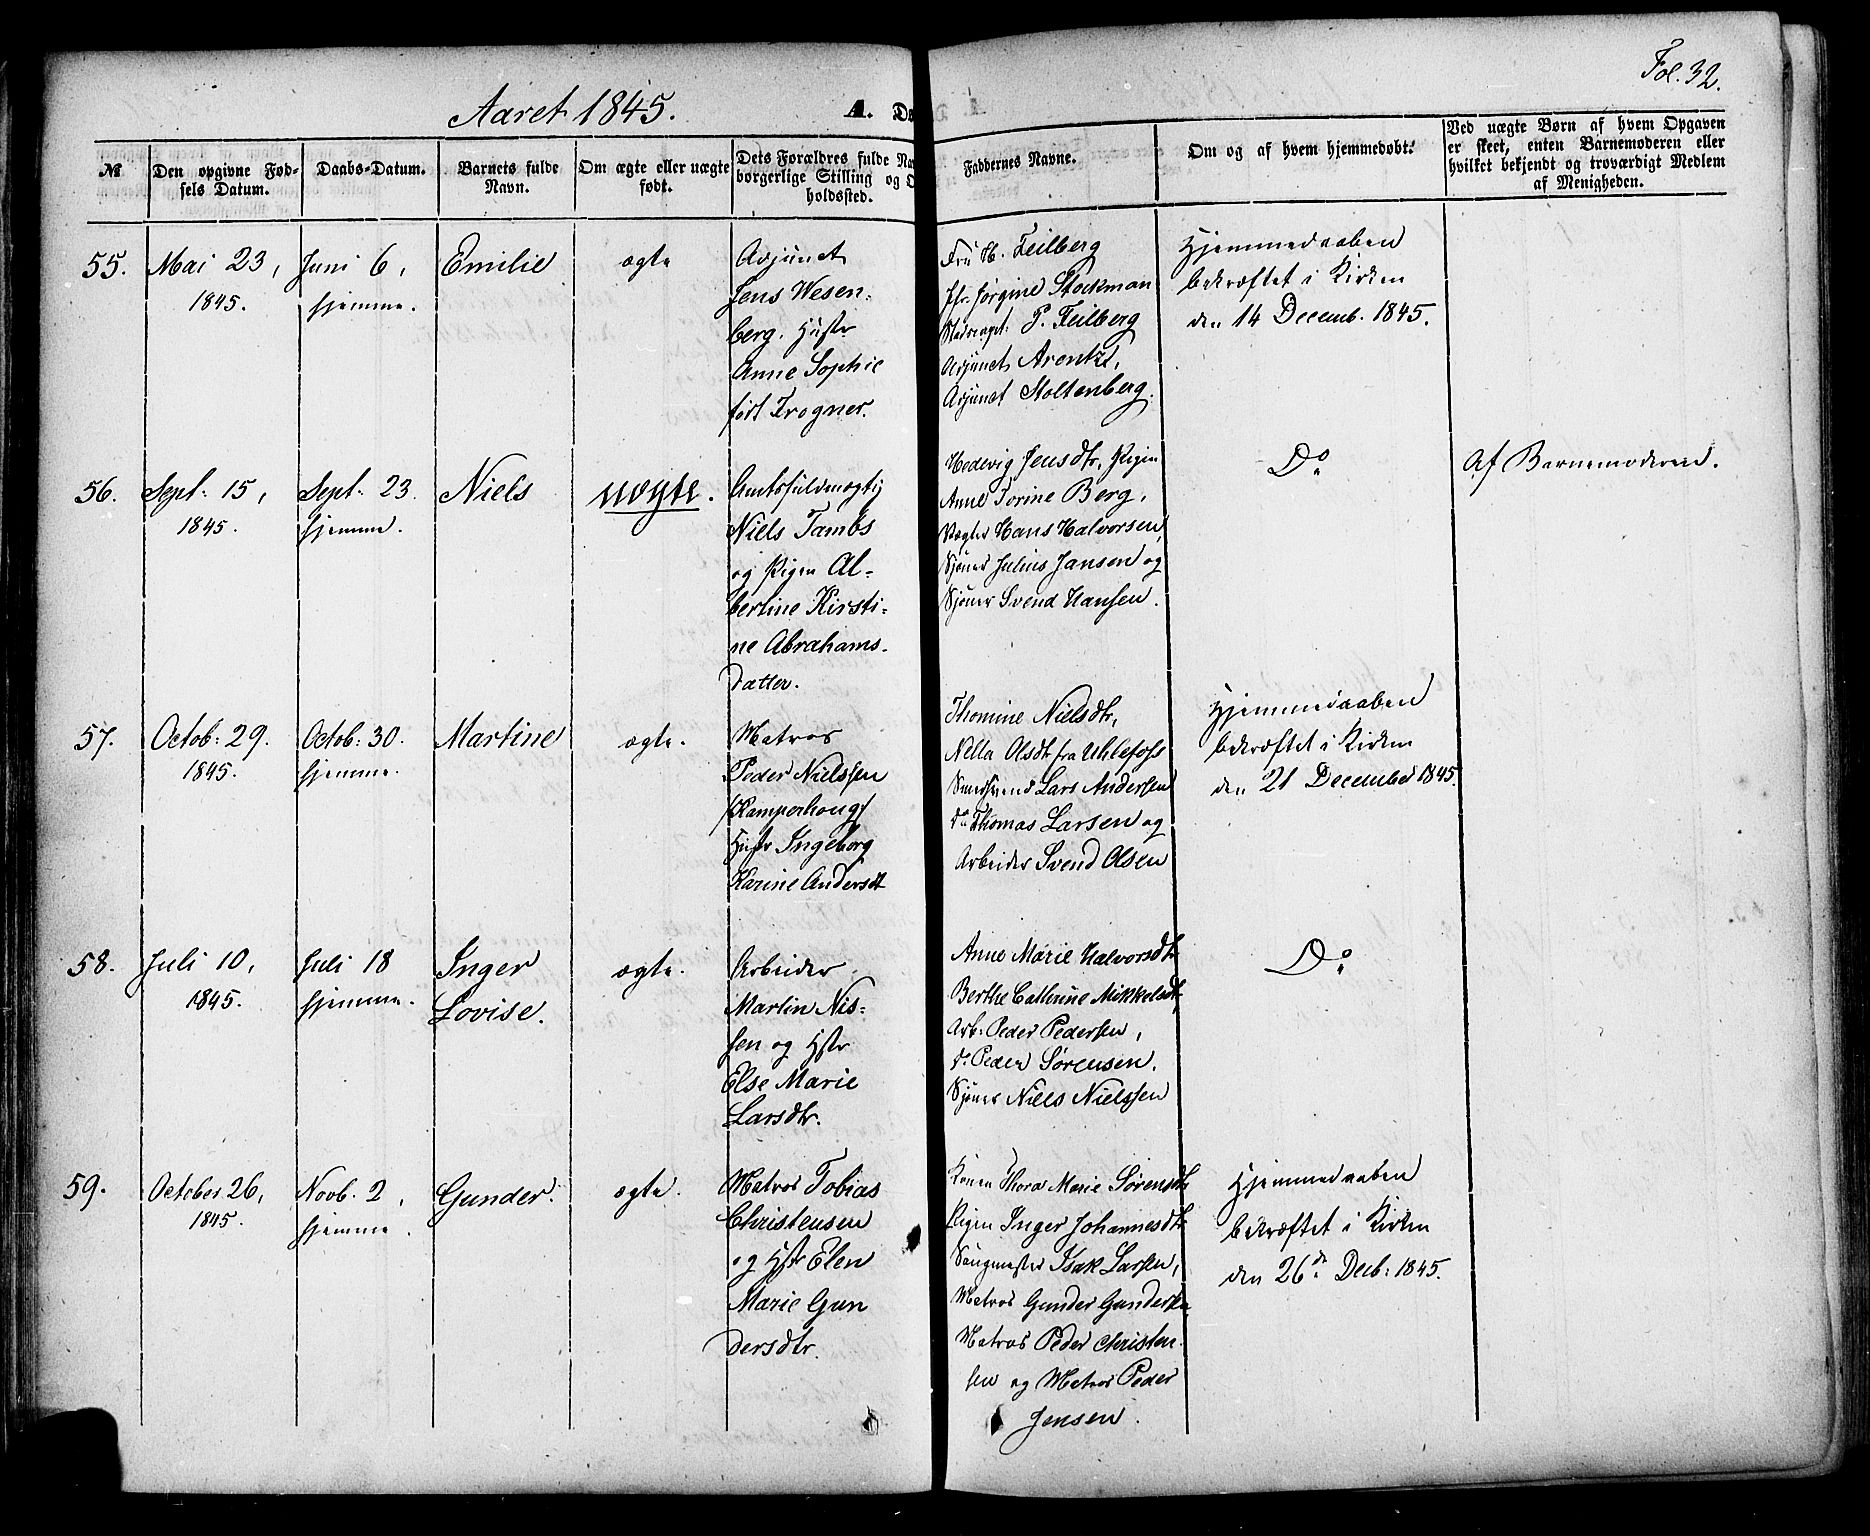 Fol. 32.
Aaret 1845.
A. Dø
№
Den opgivne Fød-
sels Datum.
Daabs-Datum.
Barnets fulde
Navn.
Om ægte eller uægte
født.
Dets Forældres fulde Na
borgerlige Stilling og O
holdssted.
Faddernes Navne.
Om og af hvem hjemmedøbt.
Ved uægte Børn af hvem Opgaven
er skeet, enten Barnemoderen eller
hvilket bekjendt og troværdigt Medlem
af Menigheden.
55.
Mai 23,
1845.
Juni 6,
hjemme.
Emilie
ægte
Adjunct
Jens Wesen-
berg. Hustr
Anne Sophie
født Trogner.
Fru H. Feilberg
Jfr. Jørgine Stockman
P. Feilberg
Adjunct Arentz,
Adjunct Stoltenberg.
Hjemmedaaben
bekræftet i Kirken
den 14 Decemb. 1845.
56.
Sept: 15,
1845.
Sept: 23.
hjemme.
Niels
uægte.
Amtsfuldmægtig
Niels Tambs
og Pigen Al-
bertine Kirsti-
ne Abrahams-
datter.
Hedevig Jensdtr, Pigen
Anne Torine Berg,
Vægter Hans Halvorsen,
Sjøms Julius Jansen og
Sjøms Svend Hansen.
Do
Af Barnemoderen.
57.
Octob: 29.
1845.
Octob: 30.
hjemme.
Martine
ægte.
Matros
Peder Nielssen
/Kamperhoug/
Hustr Ingeborg
Karine Andersdt
Thomine Nielsdtr,
Nella Olsdtr fra Uhlefoss
Smedsvend Lars Andersen
Do Thomas Larsen og
Arbeider Svend Olsen
Hjemmedaaben
bekræftet i Kirken
den 21 December 1845.
58.
Juli 10,
1845.
Juli 18
hjemme.
Inger
Lovise.
ægte.
Arbeider
Martin Nis-
sen og Hstr
Else Marie
Larsdtr.
Anne Marie Halvorsdtr
Berthe Cathrine Mikkelsdtr
Arb: Peder Pedersen,
Do Peder Sørensen.
Sjøms Niels Nielssen
Do
59.
October 26,
1845.
Novb. 2,
hjemme.
Gunder.
ægte.
Matros Tobias
Christensen
og Hstr Elen
Marie Gun
dersdtr.
Konen Thora Marie Sørensdtr
Pigen Inger Johannesdtr
Isak Larsen,
Matros Gunder Gundersen
Matros Peder Christen-
sen og Matros Peder
Jensen.
Hjemmedaaben
bekræftet i Kirken
den 26de Decb: 1845.